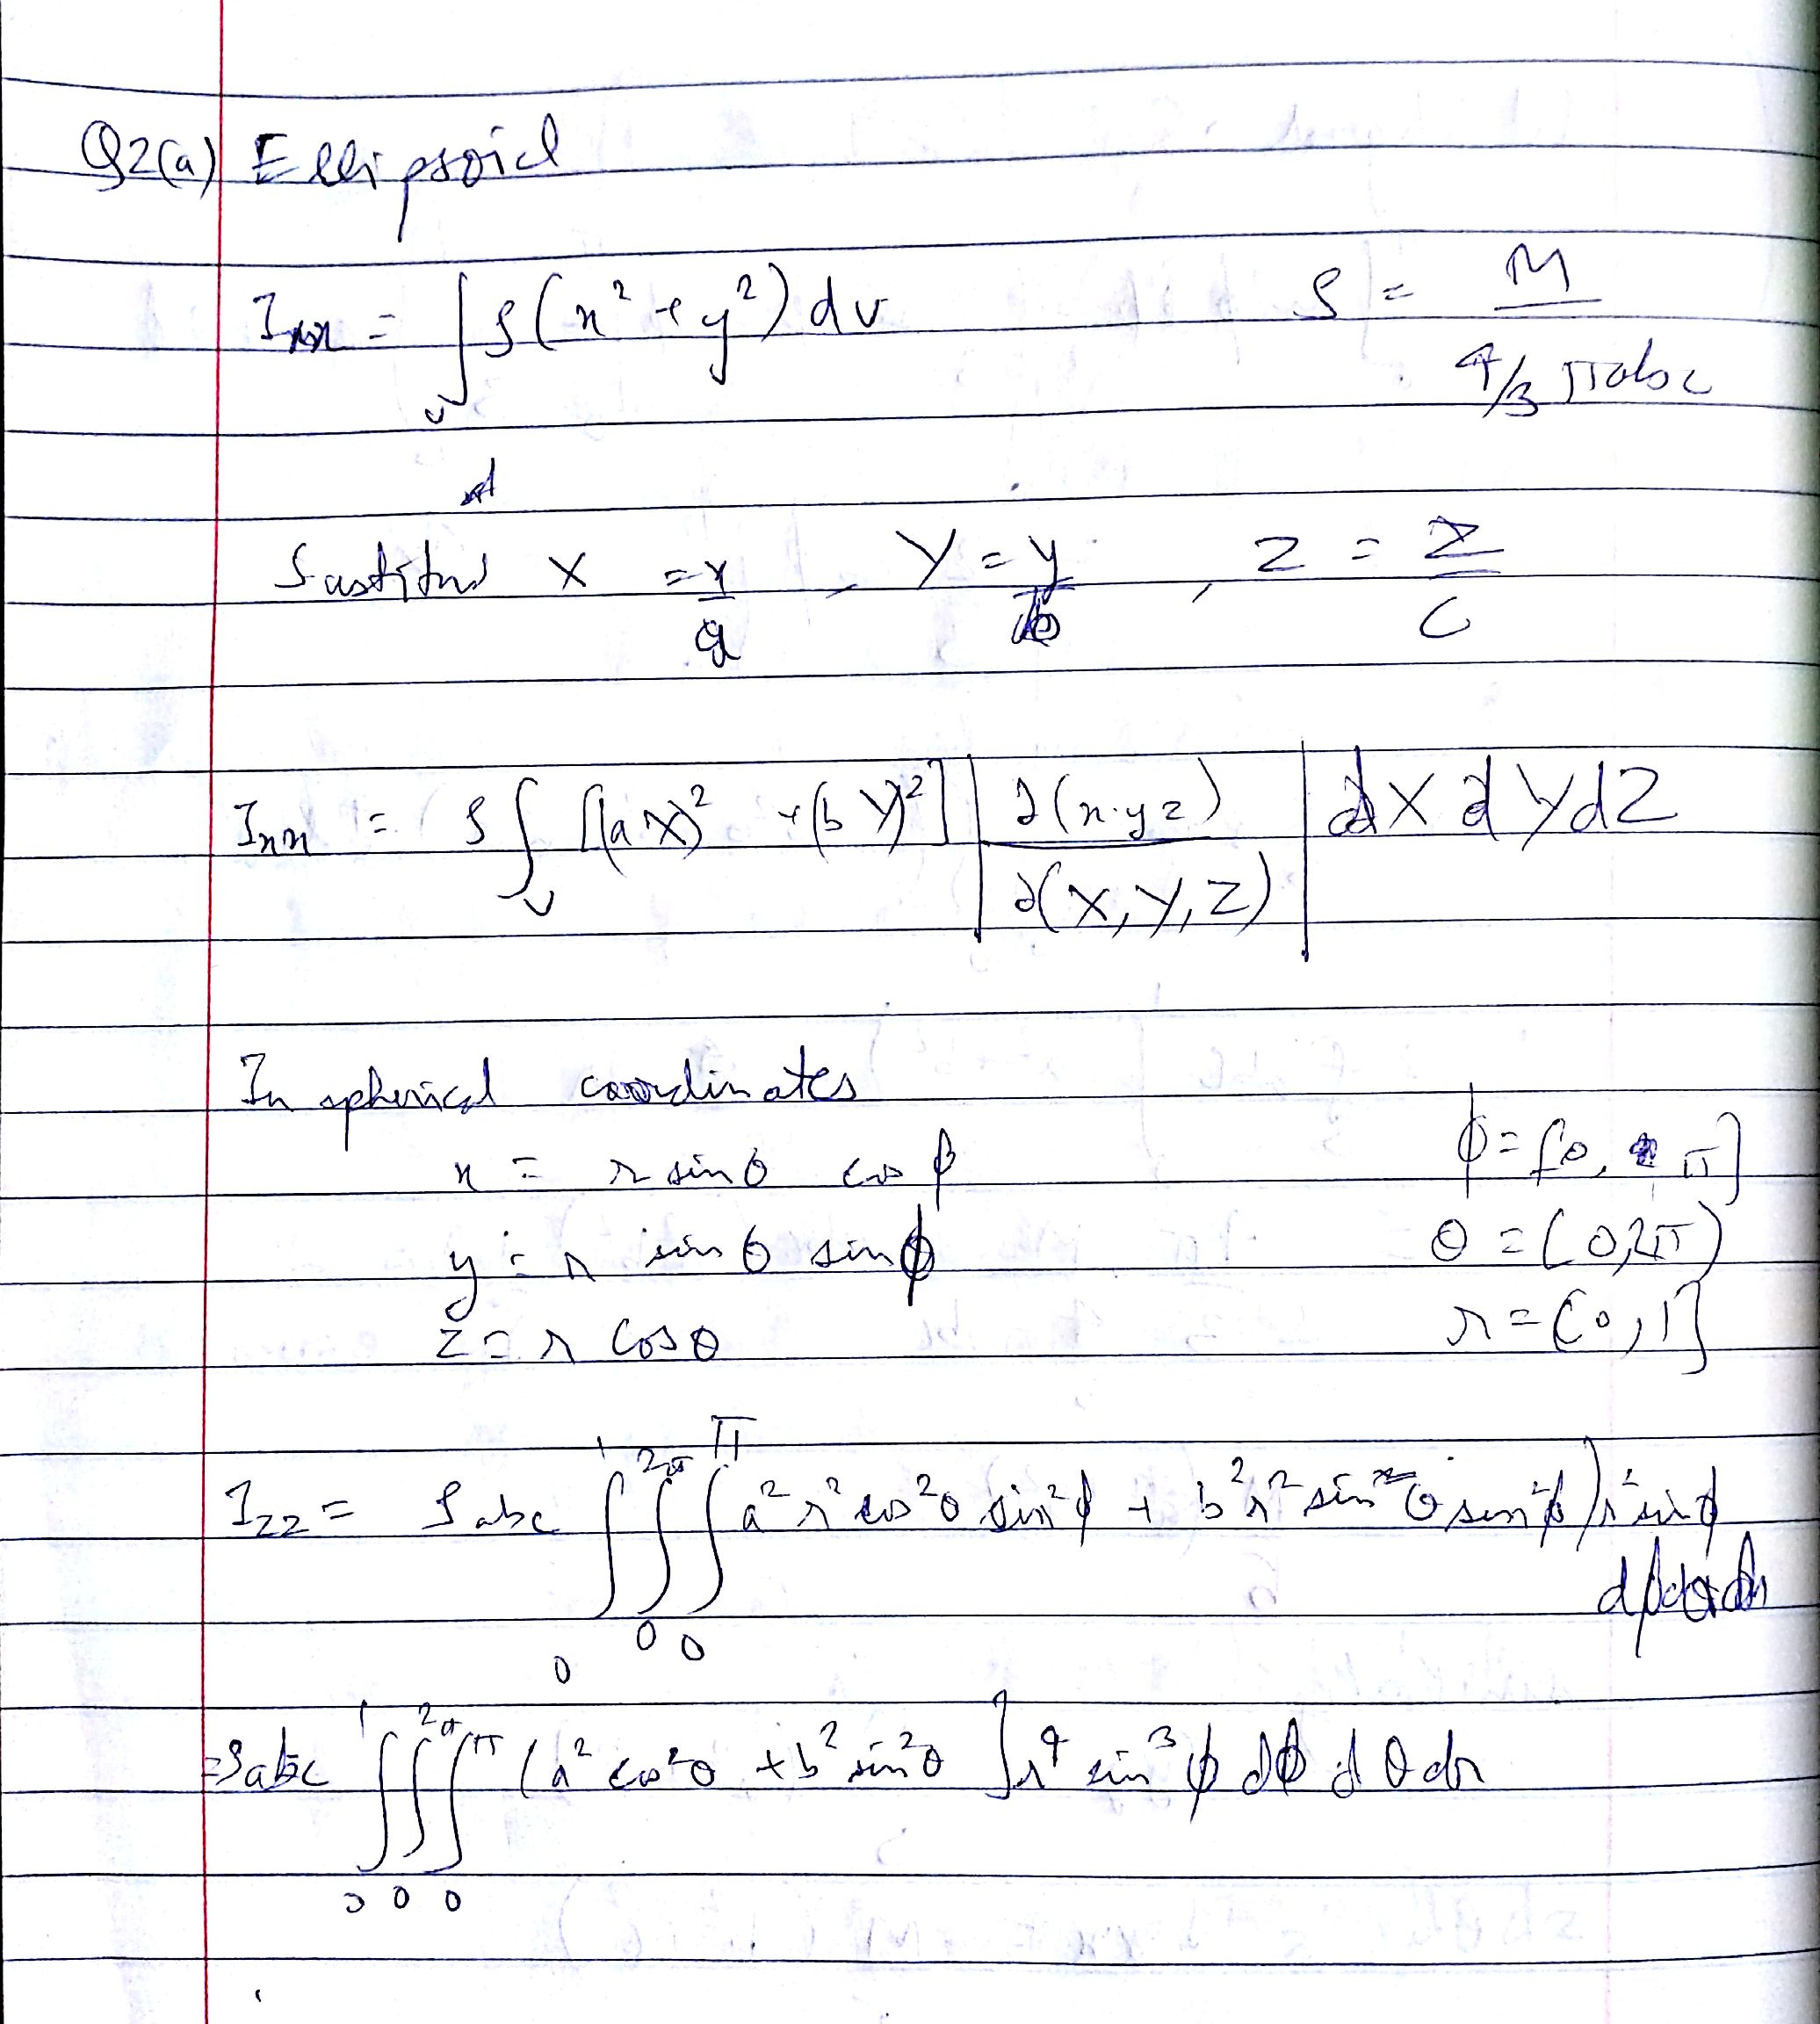 Q2(a) Ellipsoid
Ixx = ∫v ρ(x² + y²) dv    ρ = M / 4/3 πabc
Sustitus X = x/a , Y = y/b , Z = z/c
Ixx = ρ ∫v [(aX)² + (bY)²] |∂(x.yz)/∂(X,Y,Z)| dX dYdZ
In spherical coordinates
x = r sinθ cos ϕ    ϕ = [0, π]
y = r sin θ sinϕ    θ = (0,2π)
z = r cosθ    r = (0,1]
Izz = ρabc ∫₀¹ ∫₀²π ∫₀π a²r²cos²θ sin²ϕ + b²r² sin²θ sin²ϕ) r² sinϕ
dϕdθdr
= ρabc ∫₀¹ ∫₀²π ∫₀π (a² cos²θ + b² sin²θ ] r⁴ sin³ϕ dϕ dθdr